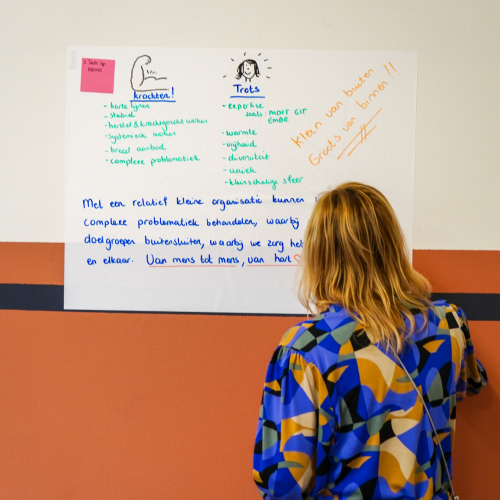 krachten!
- korte lijnen
- stabiel
- herstel & krachtgericht werken
- systemisch werken
- breed aanbod
- complexe problematiek
Trots
- expertise
MBFT GIT
EMDR
- warmte
- vrijheid
- diversiteit
- uniek
- kleinschalige sfeer
Klein van buiten
Groots van binnen!!
Met een relatief kleine organisatie kunnen
complexe problematiek behandelen, waarbij
doelgroepen buitensluiten, waarbij we zorg heb
en elkaar. Van mens tot mens, van hart